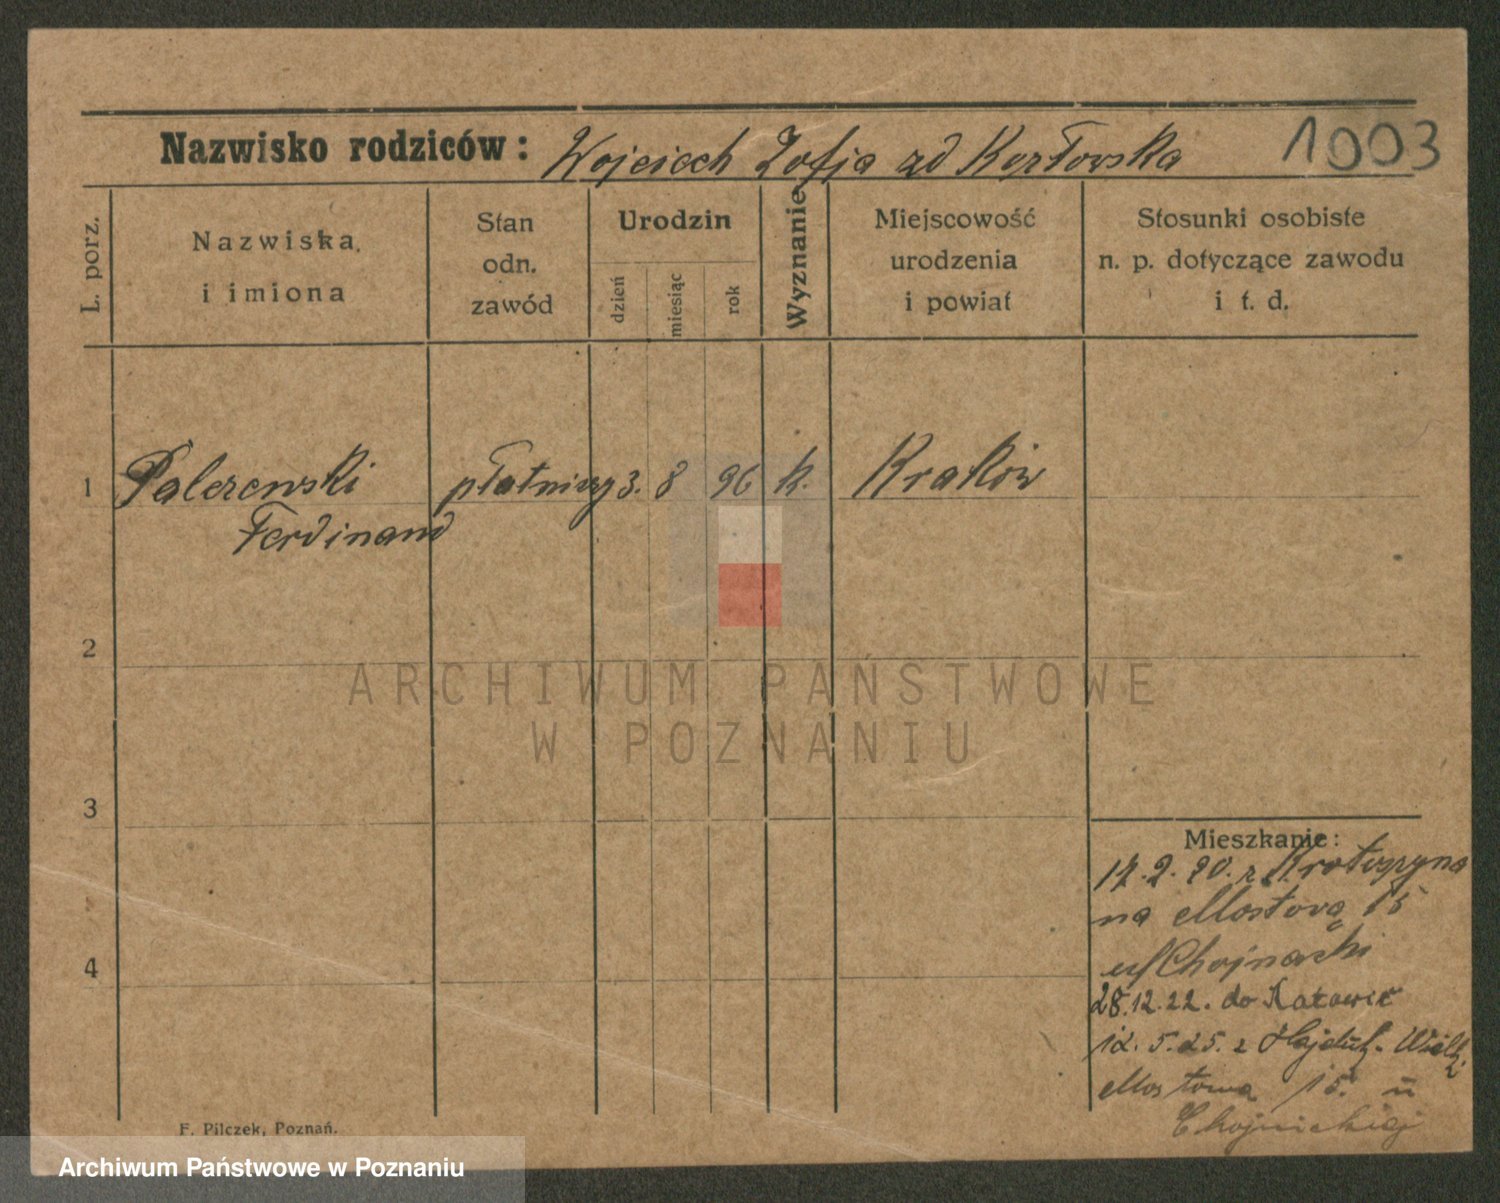 Nazwisko rodziców: Wojciech Zofja zd Kozłowska 1003
L. porz.
Nazwiska
i imiona
Stan
odn.
zawód
Urodzin
dzień miesiąc rok
Wyznanie
Miejscowość
urodzenia
i powiat
Stosunki osobiste
n. p. dotyczące zawodu
i t. d.
1 Palezewski płatniczy 3. 8 96 k. Kraków
Ferdinand
2
ARCHIWUM PAŃSTWOWE
W POZNANIU
3
Mieszkanie:
17.2.20. z Krotoszyna
na Mostową 15
Chojnacki
4
28.12.22. do Katowic
12.5.25. z Hajduk-Wielk.
Mostowa 15. u
Chojnickiej
F. Pilczek, Poznań.
Archiwum Państwowe w Poznaniu